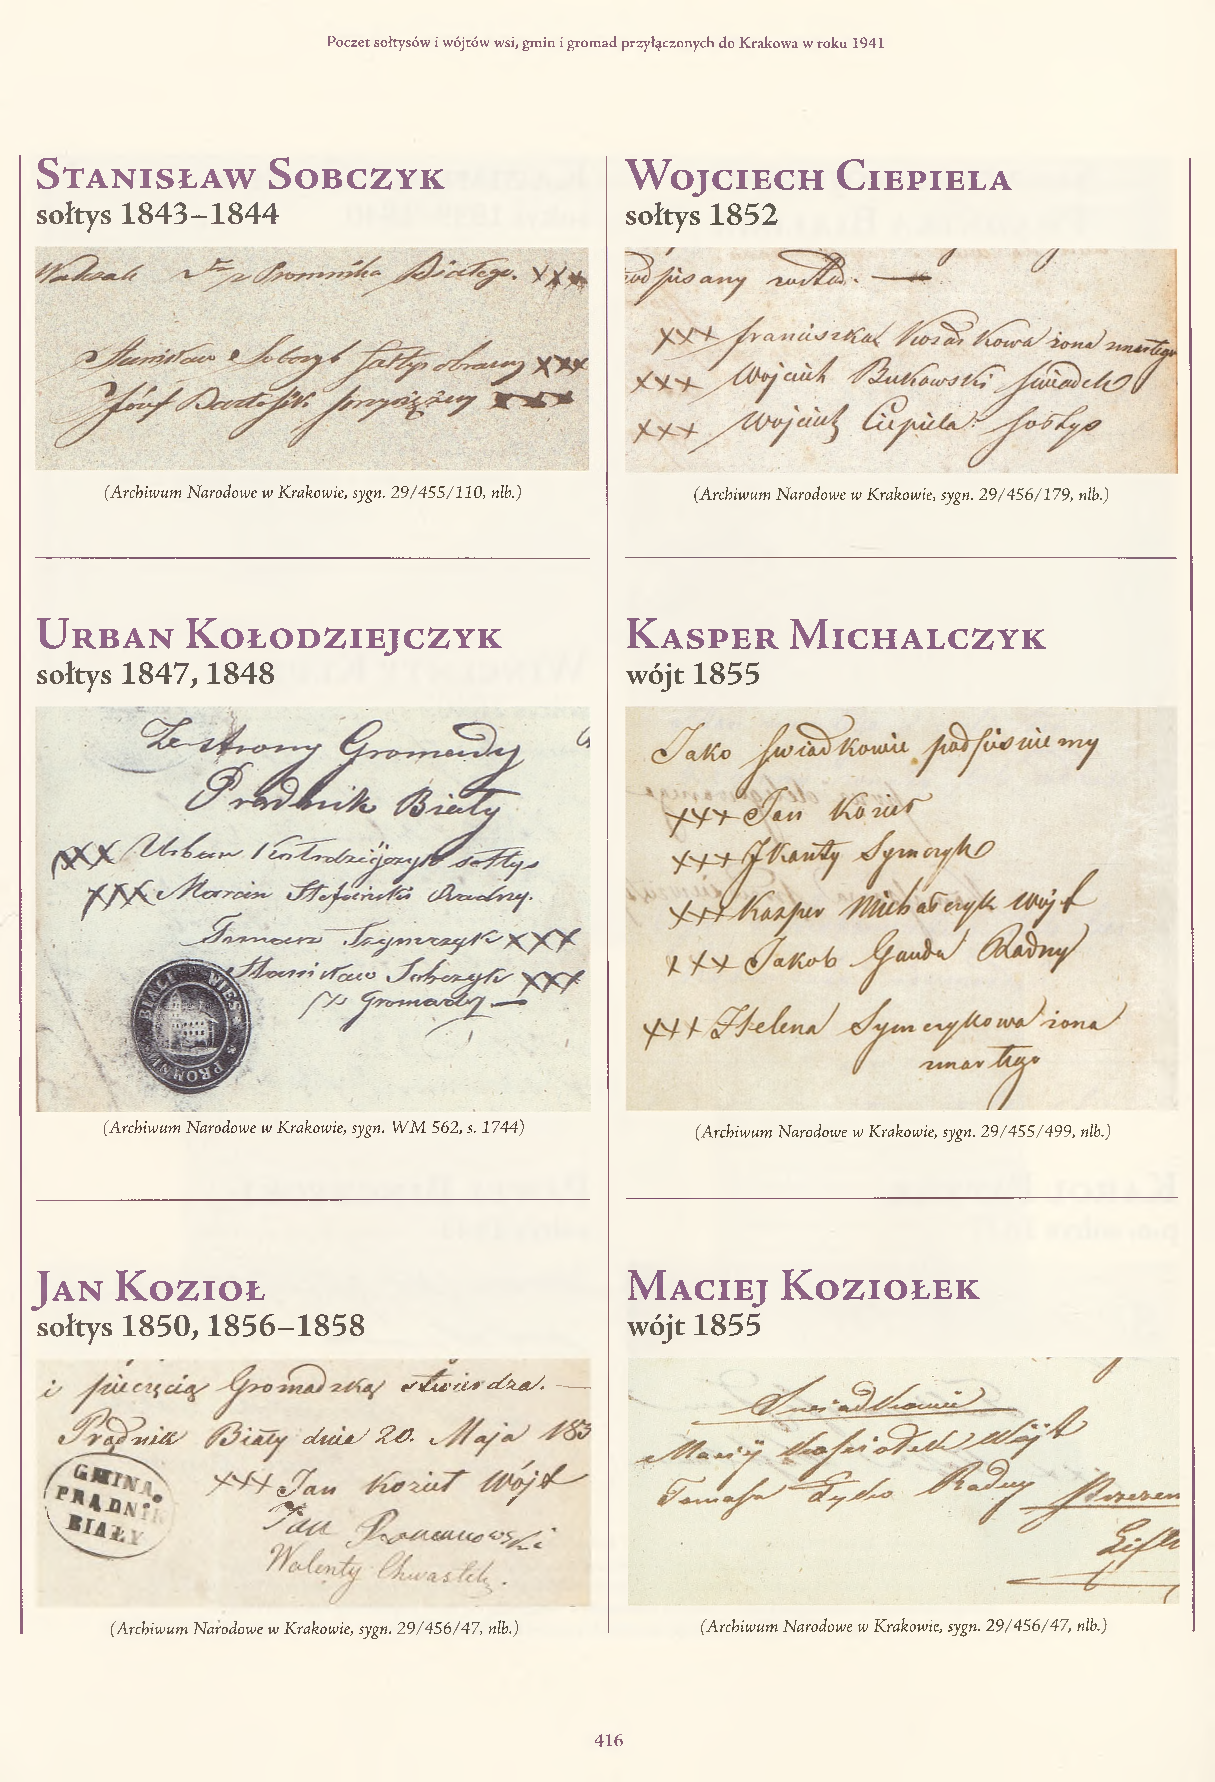 Poczet sołtysów i wójtów wsi, gmin i gromad przyłączonych do Krakowa w roku 1941
Stanisław Sobczyk
sołtys 1843–1844
z Promnika Białego. XXX
Stanisław Sobczyk sołtys obrany XXX
Józef Bartosik przysiężny XXX
(Archiwum Narodowe w Krakowie, sygn. 29/455/110, nlb.)
Urban Kołodziejczyk
sołtys 1847, 1848
Ze strony Gromady
Prądnik Biały
XXX Urban Kołodziejczyk sołtys
XXX Marcin Stefański Radny.
Tomasz Szymczyk XXX
Stanisław Sobczyk XXX
z Gromady
BIALI WIES PROMNI
(Archiwum Narodowe w Krakowie, sygn. WM 562, s. 1744)
Jan Kozioł
sołtys 1850, 1856–1858
i pieczęcią Gromadzką stwierdza.
Prądnik Biały dnia 20. Maja 185
GMINA
PRĄDNIK
BIAŁY
XXX Jan Kozieł Wójt
Jan Romanowski
Walenty Chwastek.
(Archiwum Narodowe w Krakowie, sygn. 29/456/47, nlb.)
Wojciech Ciepiela
sołtys 1852
podpisany został.
XXX Franciszka Kozaskowa żona zmarłego
XXX Wojciech Bukowski świadek
XXX Wojciech Ciepiela sołtys
(Archiwum Narodowe w Krakowie, sygn. 29/456/179, nlb.)
Kasper Michalczyk
wójt 1855
Jako świadkowie podpisuiemy
XXX Jan Kozieł
XXX JKanty Symczyk
XXX Kasper Michalczyk Wójt
XXX Jakob Gauda Radny
XXX Helena Symczykowa żona
zmarłego
(Archiwum Narodowe w Krakowie, sygn. 29/455/499, nlb.)
Maciej Koziołek
wójt 1855
Świadkowie
Maciej Kosiołek Wójt
Tomasz Dydo Radny
(Archiwum Narodowe w Krakowie, sygn. 29/456/47, nlb.)
416